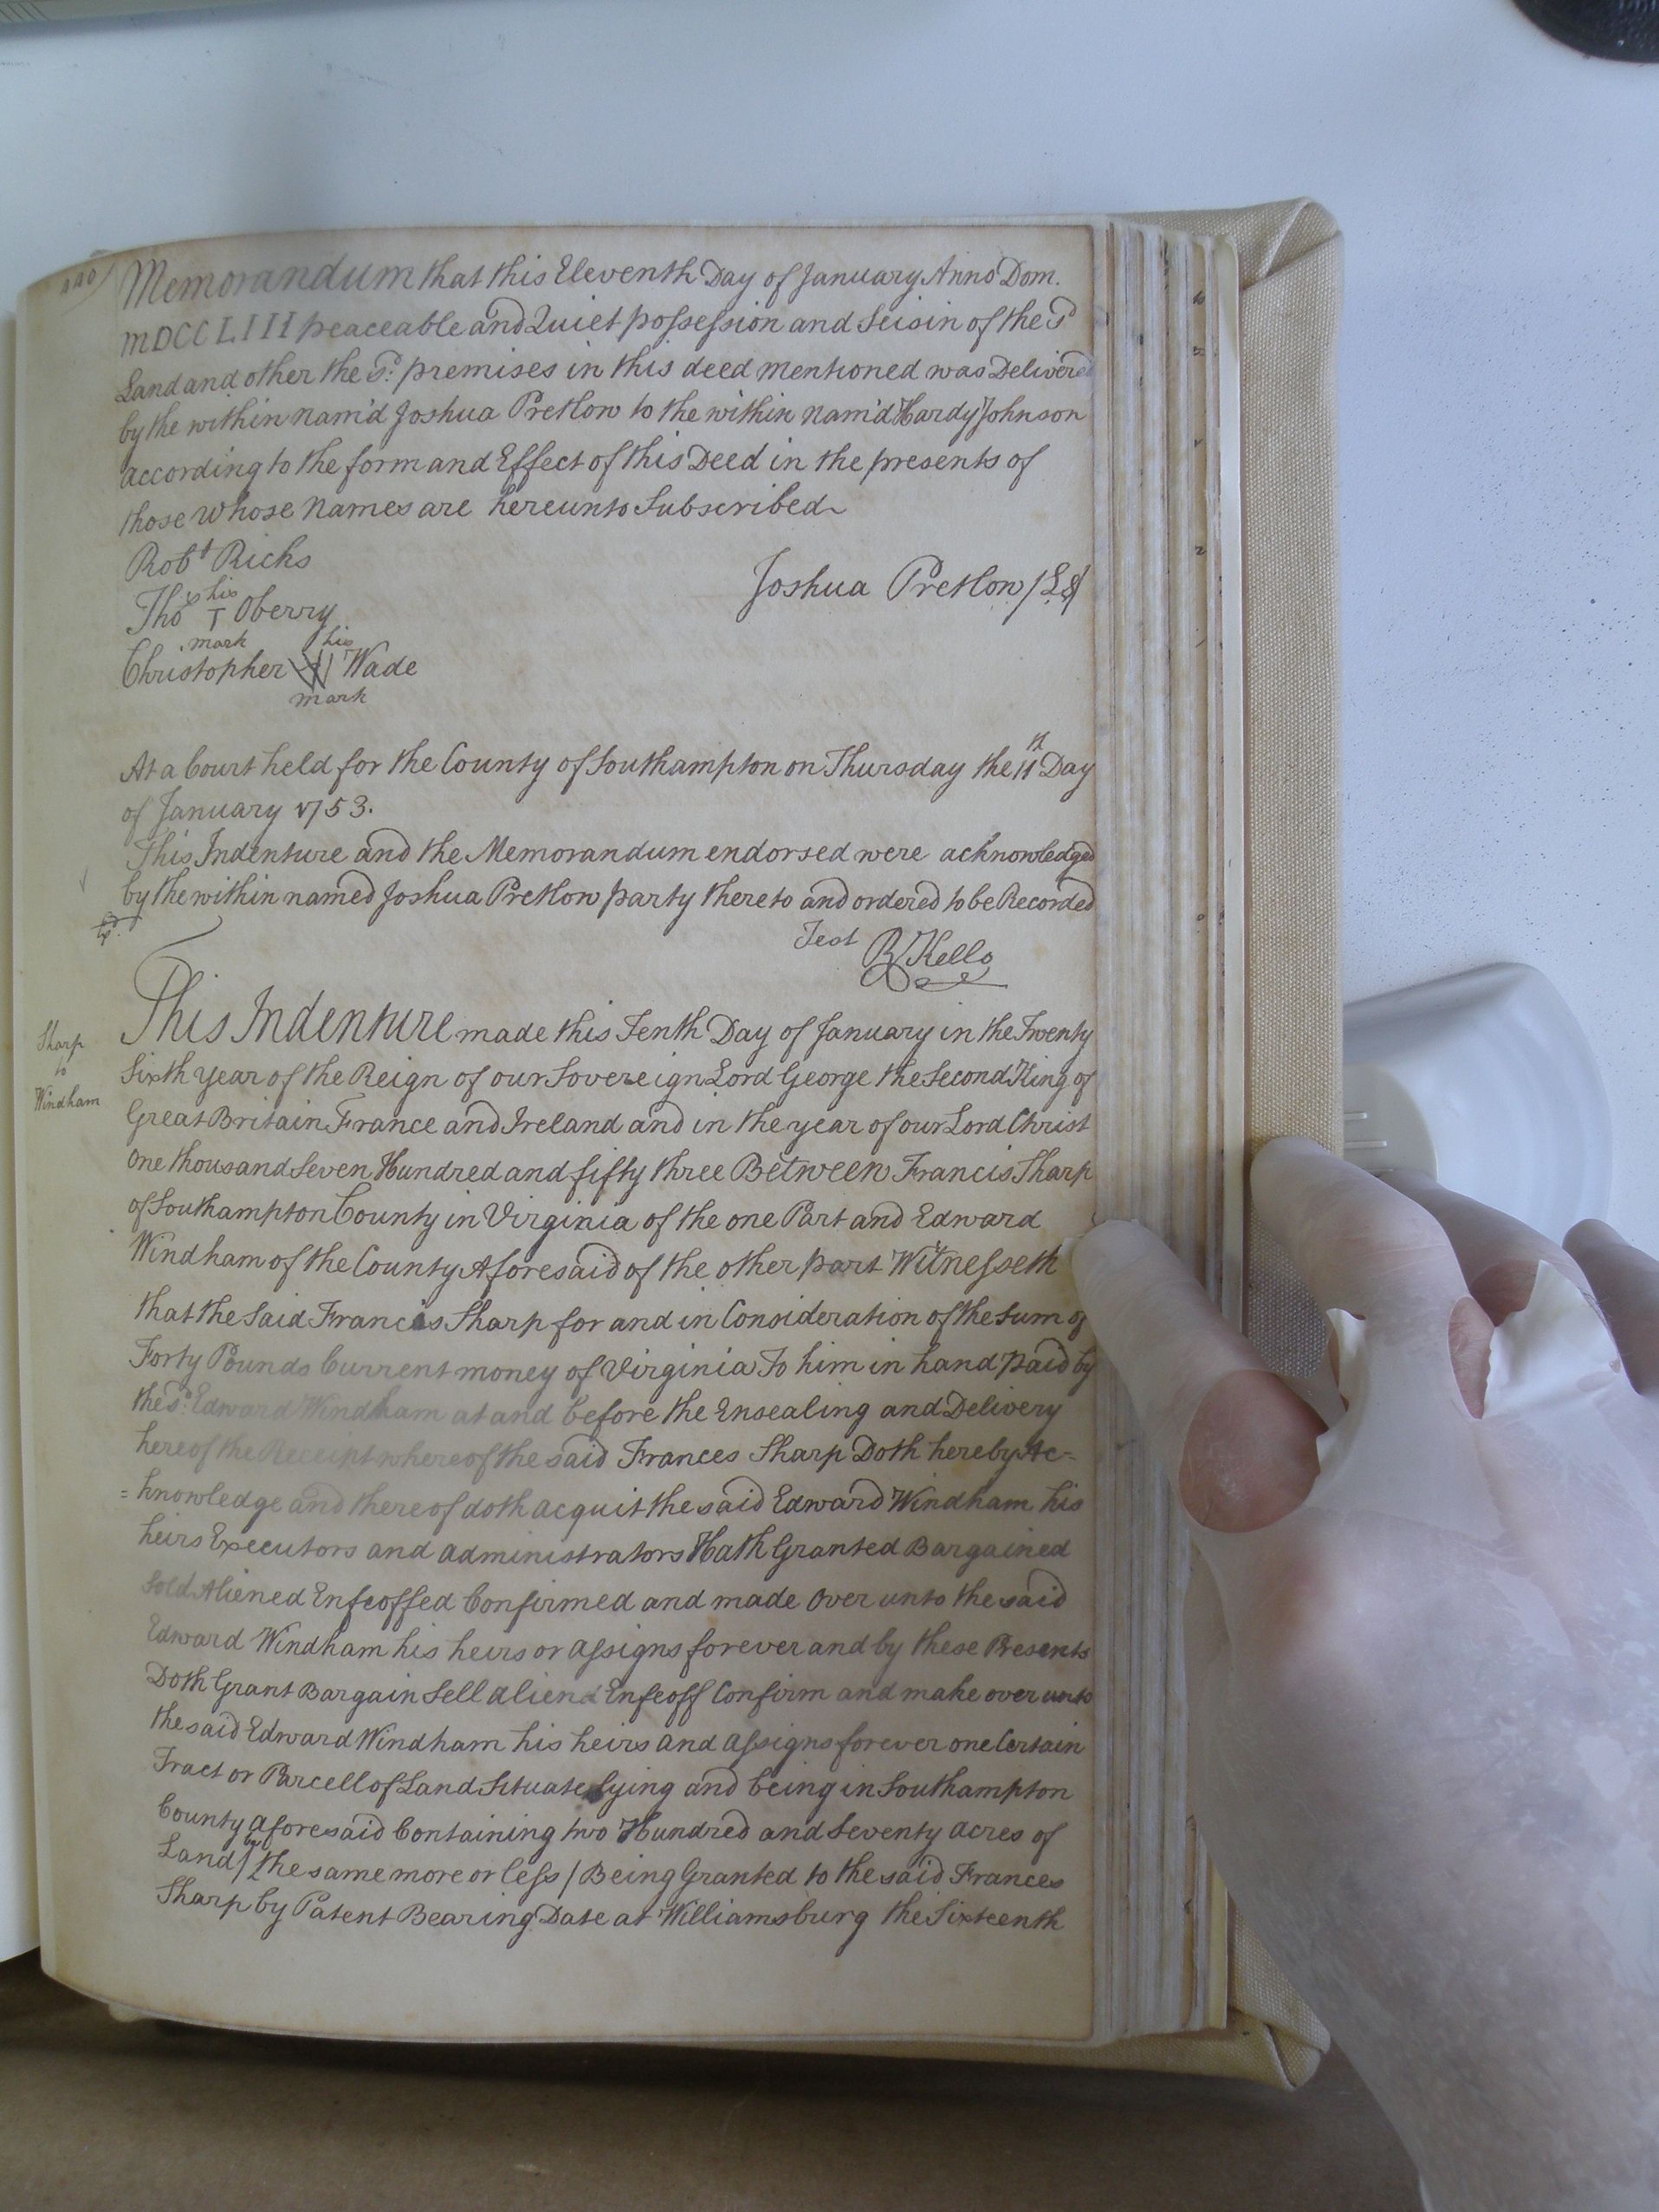 440
Memorandum that this Eleventh Day of January Anno Dom.
MDCCLIII peaceable and Quiet possession and Seisin of the sd
Land and other the sd. premises in this deed mentioned was Delivered
by the within nam'd Joshua Pretlow to the within nam'd Hardy Johnson
according to the form and Effect of this Deed in the presents of
those whose Names are hereunto Subscribed
Robt Ricks
Joshua Pretlow / LS
his
Thos T Oberry
mark his
Christopher W Wade
mark
At a Court held for the County of Southampton on Thursday the 11th Day
of January 1753.
This Indenture and the Memorandum endorsed were acknowledged
by the within named Joshua Pretlow party thereto and ordered to be Recorded
Test R Kello
Sharp
to
Windham
This Indenture made this Tenth Day of January in the Twenty
Sixth year of the Reign of our Sovereign Lord George the Second King of
Great Britain France and Ireland and in the year of our Lord Christ
One thousand Seven Hundred and fifty three Between Francis Sharp
of Southampton County in Virginia of the one Part and Edward
Windham of the County Aforesaid of the other part Witnesseth
that the Said Francis Sharp for and in Consideration of the Sum of
Forty Pounds Current money of Virginia To him in hand paid by
the sd. Edward Windham at and before the Ensealing and Delivery
hereof the Receipt whereof the said Frances Sharp Doth hereby Ac=
=knowledge and thereof doth acquit the said Edward Windham his
heirs Executors and administrators Hath Granted Bargained
Sold Aliened Enfeoffed Confirmed and made Over unto the said
Edward Windham his heirs or assigns forever and by these Presents
Doth Grant Bargain Sell alien Enfeoff Confirm and make over unto
the said Edward Windham his heirs and assigns forever one Certain
Tract or Parcell of Land Situate lying and being in Southampton
County aforesaid Containing two Hundred and Seventy acres of
Land / be the same more or less / Being Granted to the said Frances
Sharp by Patent Bearing Date at Williamsburg the Sixteenth